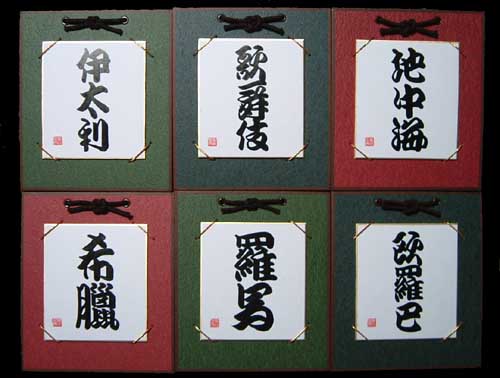 伊太利
歌舞伎
地中海
希臘
羅馬
欧羅巴